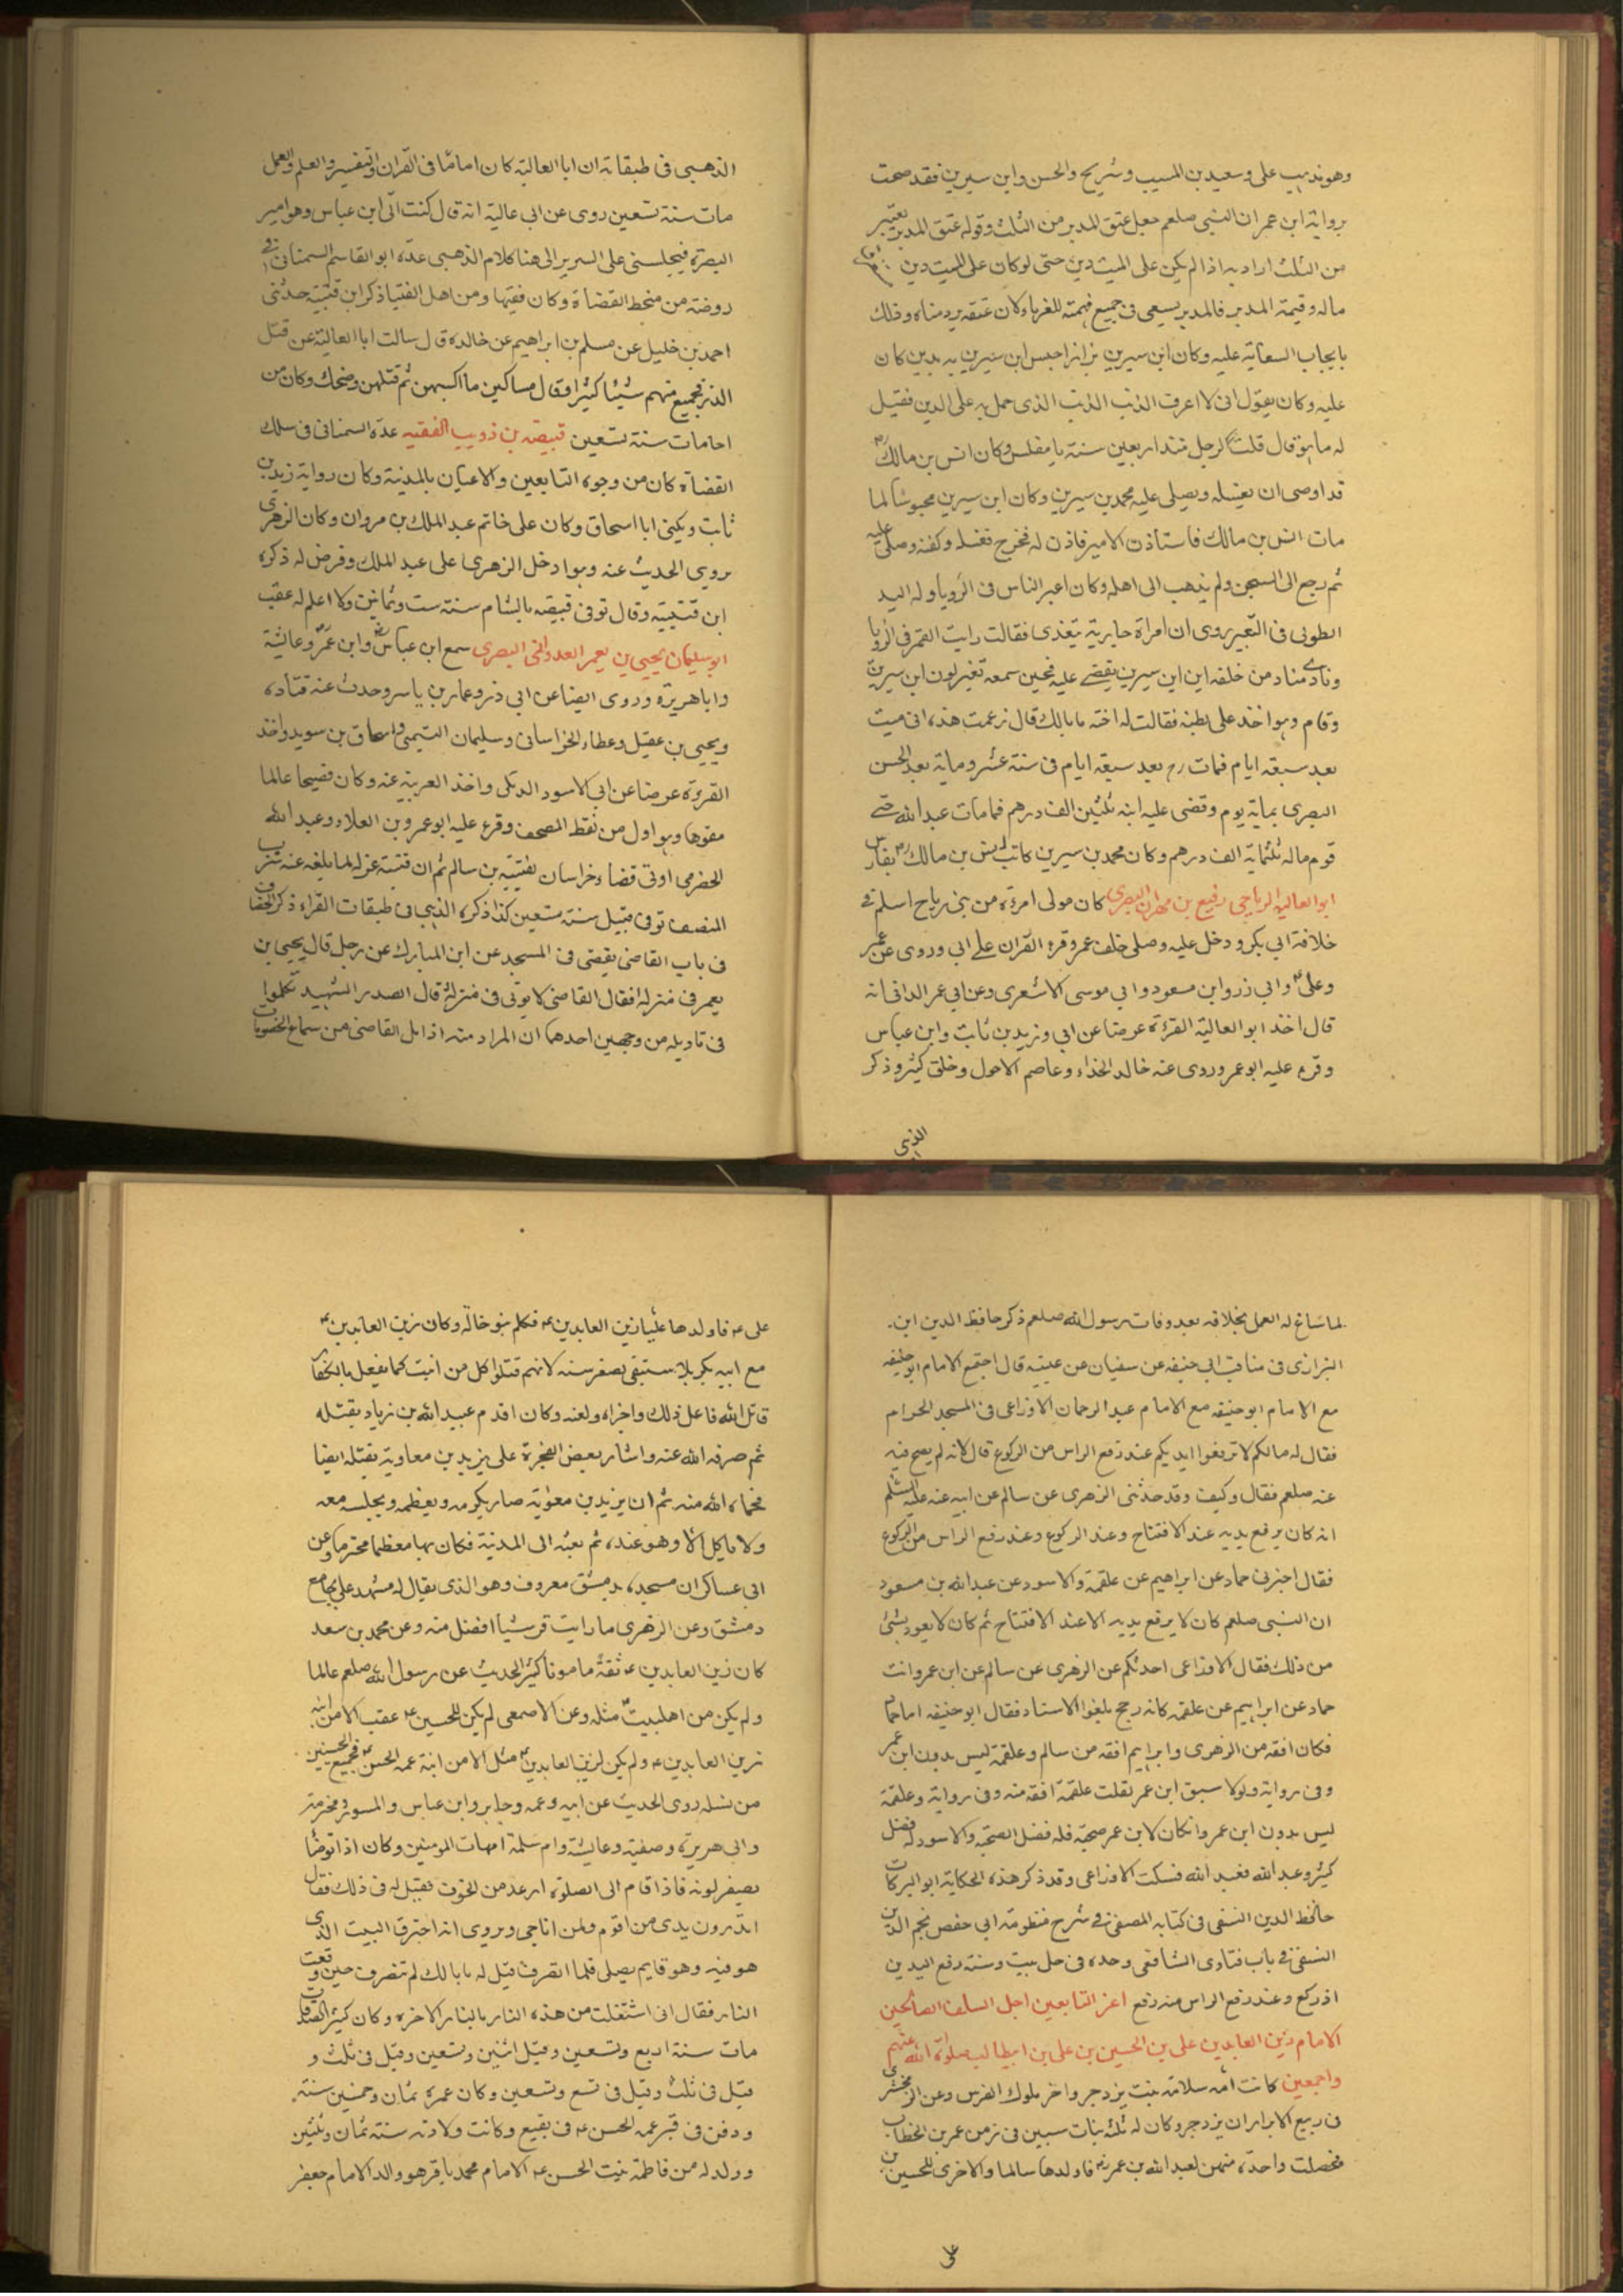 وهو مذهب على وسعيد بن المسيب وشريح والحسن وابن سيرين فقد صحت
برواية ابن عمر ان النبي صلعم جعل عتق المدبر من الثلث وقوله عتق المدبر يعتبر
من الثلث اراد به اذا لم يكن على الميت دين حتى لو كان على الميت دين
ماله وقيمة المدبر فالمدبر يسعى فى جميع قيمته للغرماء لان عتقه يرد مناه وذلك
بايجاب السعاية عليه وكان ابن سيرين بزازا حبس ابن سيرين به بدين كان
عليه وكان يقول انى لا اعرف الذنب الذى حمل به على الدين فقيل
له ما هو قال قلت لرجل منذ اربعين سنة يا مفلس وكان انس بن مالك
قد اوصى ان يغسله ويصلى عليه محمد بن سيرين وكان ابن سيرين محبوسا لما
مات انس بن مالك فاستاذن الامير فاذن له فخرج فغسله وكفنه وصلى عليه
ثم رجع الى السجن ولم يذهب الى اهله وكان اعبر الناس فى الرويا وله اليد
الطولى فى التعبير روى ان امراة جاءته يتغدى فقالت رايت القمر فى الرويا
ونادى مناد من خلفه اين ابن سيرين يقضى عليه فحين سمعه تغير لون ابن سيرين
وقام وهو اخذ على بطنه فقالت له اخته مابالك قال زعمت هذه انى ميت
بعد سبعة ايام فمات رح بعد سبعة ايام فى سنة عشر ومائة بعد الحسن
البصرى بمائة يوم وقضى عليه ابنه ثلثين الف درهم فما مات عبد الله حتى
قوم ماله ثلثمائة الف درهم وكان محمد بن سيرين كاتب انس بن مالك بفارس
ابو العالية الرياحى رفيع بن مهران البصرى كان مولى امرءة من بنى رياح اسلم فى
خلافة ابى بكر ودخل عليه وصلى خلف عمر وقرء القران على ابى وروى عن عمر
وعلى وابى ذر وابن مسعود وابى موسى الاشعرى وعن ابى عمر الدانى انه
قال اخذ ابو العالية القرءة عرضا عن ابى وزيد بن ثابت وابن عباس
وقرء عليه ابو عمر وروى عنه خالد الحذاء وعاصم الاحول وخلق كثير وذكر
الذهبى
الذهبى فى طبقاته ان ابا العالية كان اماما فى القران والتفسير والعلم والعمل
مات سنة تسعين روى عن ابى عالية انه قال كنت اتى ابن عباس وهو امير
البصرة فيجلسنى على السرير الى هنا كلام الذهبى عده ابو القاسم السمنانى فى
روضته من منحط القضاة وكان فقيها ومن اهل الفتيا ذكر ابن قتيبة حدثنى
احمد بن خليل عن مسلم بن ابراهيم عن خالده قال سالت ابا العالية عن قتل
الذر فجميع منهم شيئا كثيرا وقال مساكين ما اكسبهن ثم قتلهن وضحك وكان من
احامات سنة تسعين قبيصه بن ذويب الفقيه عده السمنانى فى سلك
القضاة كان من وجوه التابعين والاعيان بالمدينة وكان رواية زيد بن
ثابت ويكنى ابا اسحاق وكان على خاتم عبد الملك بن مروان وكان الزهرى
يروى الحديث عنه وهو ادخل الزهرى على عبد الملك وفرض له ذكره
ابن قتيبة وقال توفى قبيصه بالشام سنة ست وثمانين ولا اعلم له عقب
ابو سليمان يحيى بن يعمر العدوانى البصرى سمع ابن عباس وابن عمر وعائشة
وابا هريرة وروى ايضا عن ابى ذر وعمار بن ياسر وحدث عنه قتادة
ويحيى بن عقيل وعطاء الخراسانى وسليمان التيمى واسحاق بن سويد واخذ
القرءة عرضا عن ابى الاسود الدئلى واخذ العربية عنه وكان فصيحا عالما
مفوها وهو اول من نقط المصحف وقرء عليه ابو عمرو بن العلاء وعبد الله
الحضرمى اوتى قضاء خراسان لقتيبة بن سالم ثم ان قتيبة عزله لما بلغه عنه شرب
المنصف توفى قبيل سنة تسعين كذا ذكره الذهبى فى طبقات القراء ذكر الخصاف
فى باب القاضى يقضى فى المسجد عن ابن المبارك عن رجل قال يحيى بن
يعمر فى منزله فقال القاضى لا يوتى فى منزله قال الصدر الشهيد تكلموا
فى تاويله من وجهين احدهما ان المراد منه اذا مل القاضى من سماع الخصومات
لما شاع له العمل بخلافه بعد وفات رسول الله صلعم ذكر حافظ الدين ابن
البزازى فى مناقب ابى حنيفه عن سفيان عن عيينه قال اجتمع الامام ابو حنيفه
مع الامام ابو حنيفه مع الامام عبد الرحمان الاوزاعى فى المسجد الحرام
فقال له مالكم لا ترفعوا ايديكم عند رفع الراس من الركوع قال لانه لم يصح فيه
عنه صلعم فقال وكيف وقد حدثنى الزهرى عن سالم عن ابيه عنه عليه السلم
انه كان يرفع يديه عند الافتتاح وعند الركوع وعند رفع الراس من الركوع
فقال اخبرنى حماد عن ابراهيم عن علقمة والاسود عن عبد الله بن مسعود
ان النبى صلعم كان لا يرفع يديه الا عند الافتتاح ثم كان لا يعود بشئ
من ذلك فقال الاوزاعى احدثكم عن الزهرى عن سالم عن ابن عمر وانت
حماد عن ابراهيم عن علقمه كانه رجح بلغوا الاستاد فقال ابو حنيفه اما حماد
فكان افقه من الزهرى وابراهيم افقه من سالم وعلقمة ليس بدون ابن عمر
وفى رواية ولولا سبق ابن عمر لقلت علقمة افقه منه وفى رواية وعلقمة
ليس بدون ابن عمر وانكان لابن عمر صحبة فله فضل الصحبة والاسود له فضل
كثير وعبد الله فعبد الله فسكت الاوزاعى وقد ذكر هذه الحكاية ابو البركات
حافظ الدين النسفى فى كتابه المصفى فى شرح منظومة ابى حفص نجم الدين
النسفى فى باب فتاوى الشافعى وحده فى حل بيت وسنة رفع اليدين
اذ ركع وعند رفع الراس منه رفع اعز التابعين اجل السلف الصالحين
الامام زين العابدين على بن الحسين بن على بن ابيطالب صلوة الله عليهم
واجمعين كانت امه سلامة بنت يزدجر واخر ملوك الفرس وعن الزمخشرى
فى ربيع الابرار ان يزدجر وكان له ثلث بنات سبين فى زمن عمر بن الخطاب
فحصلت واحدة منهن لعبد الله بن عمر رض فاولدها سالما والاخرى للحسين بن
على
على ع فاولدها عليا زين العابدين ع فكلم بنو خالة وكان زين العابدين ع
مع ابيه بكربلا ستبقى بصغر سنه لانهم قتلوا كل من انبت كما يفعل بالكفار
قاتل الله فاعل ذلك واخزاه ولعنه وكان اقدم عبيد الله بن زياد بقتله
ثم صرفه الله عنه واشار بعض الفجرة على يزيد بن معاوية بقتله ايضا
فحماه الله منه ثم ان يزيد بن معوية صار يكرمه ويعظمه ويجلسه معه
ولا ياكل الا وهو عنده ثم بعثه الى المدينة فكان بها معظما محترما وعن
ابى عساكر ان مسجده بدمشق معروف وهو الذى يقال له مشهد على بجامع
دمشق وعن الزهرى ما رايت قرشيا افضل منه وعن محمد بن سعد
كان زين العابدين ع ثقة مامونا كثير الحديث عن رسول الله صلعم عالما
ولم يكن من اهلبيت مثله وعن الاصمعى لم يكن للحسين ع عقب الا من ابنه
زين العابدين ع ولم يكن لزين العابدين ع مثل الا من ابنة عمه الحسن ع فجميع الحسنين
من نسله روى الحديث عن ابيه وعمه وجابر وابن عباس والمسور ومخرمة
وابى هريرة وصفية وعايشة وام سلمة امهات المومنين وكان اذا توضا
يصفر لونه فاذا قام الى الصلوة ارعد من الخوف فقيل له فى ذلك فقال
اتدرون يدى من اقوم ولمن اناجى ويروى انه احترق البيت الذى
هو فيه وهو قايم يصلى فلما انصرف قيل له مابالك لم تنصرف حين وقعت
النار فقال انى اشتغلت من هذه النار بالنار الاخره وكان كثير الصدقات
مات سنة اربع وتسعين وقيل اثنين وتسعين وقيل فى ثلث و
قيل فى ثلث وقيل فى تسع وتسعين وكان عمره ثمان وخمسين سنة
ودفن فى قبر عمه الحسن ع فى بقيع وكانت ولادته سنة ثمان وثلثين
وولد له من فاطمة بنت الحسن ع الامام محمد باقر هو والد الامام جعفر